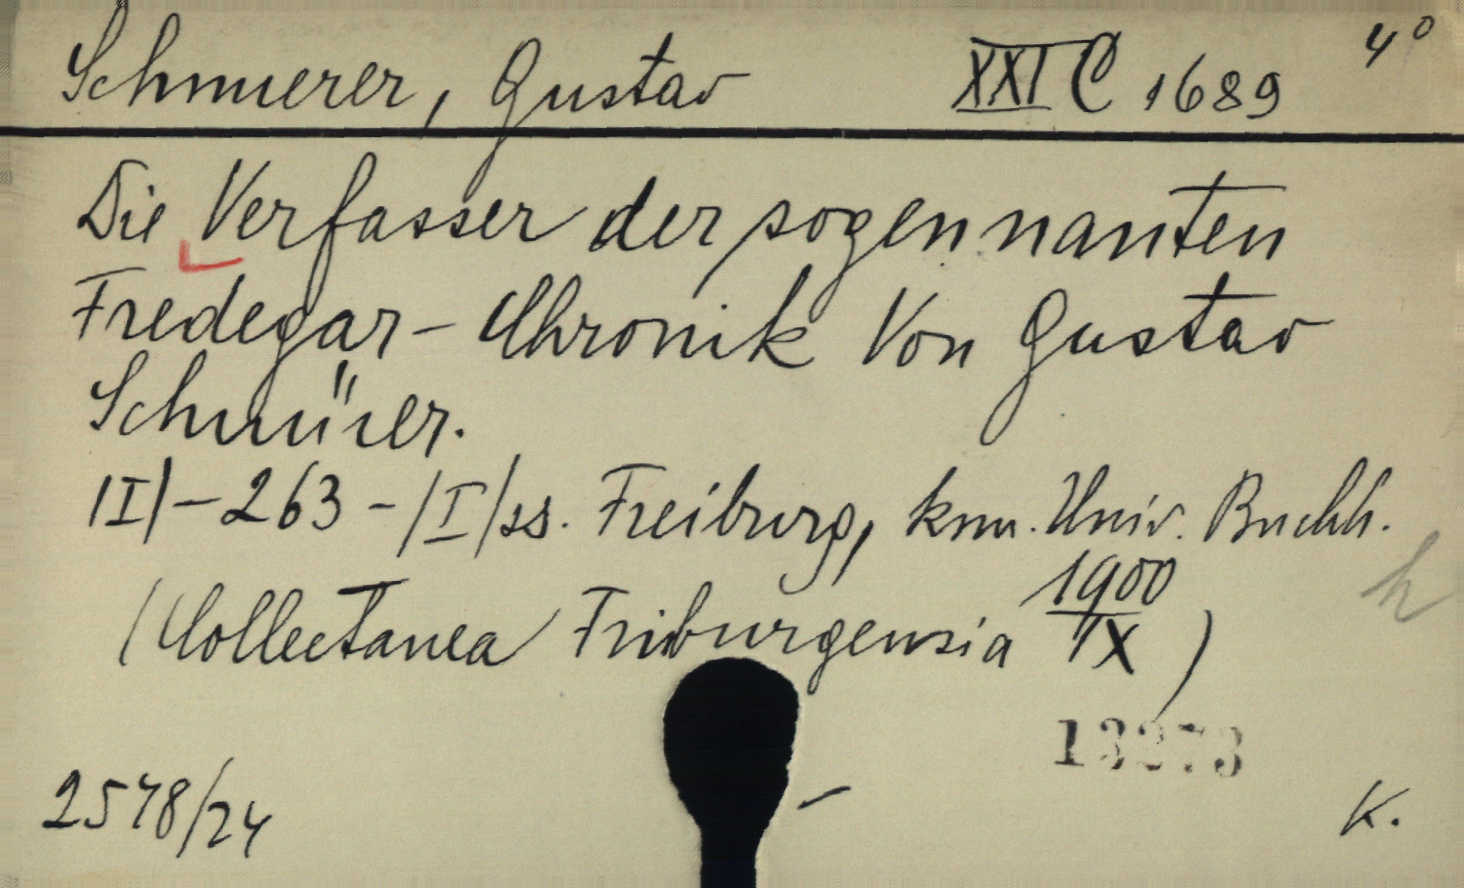 Schnuerer, Gustav XXI C 1689 4°
Die Verfasser der sogennanten
Fredegar-Chronik Von Gustav
Schnürer.
/I/-263-/I/ss. Freiburg, kmn. Univ. Buchh.
1900
(Collectanea Friburgensia IX)
13273
2578/24 K.
h